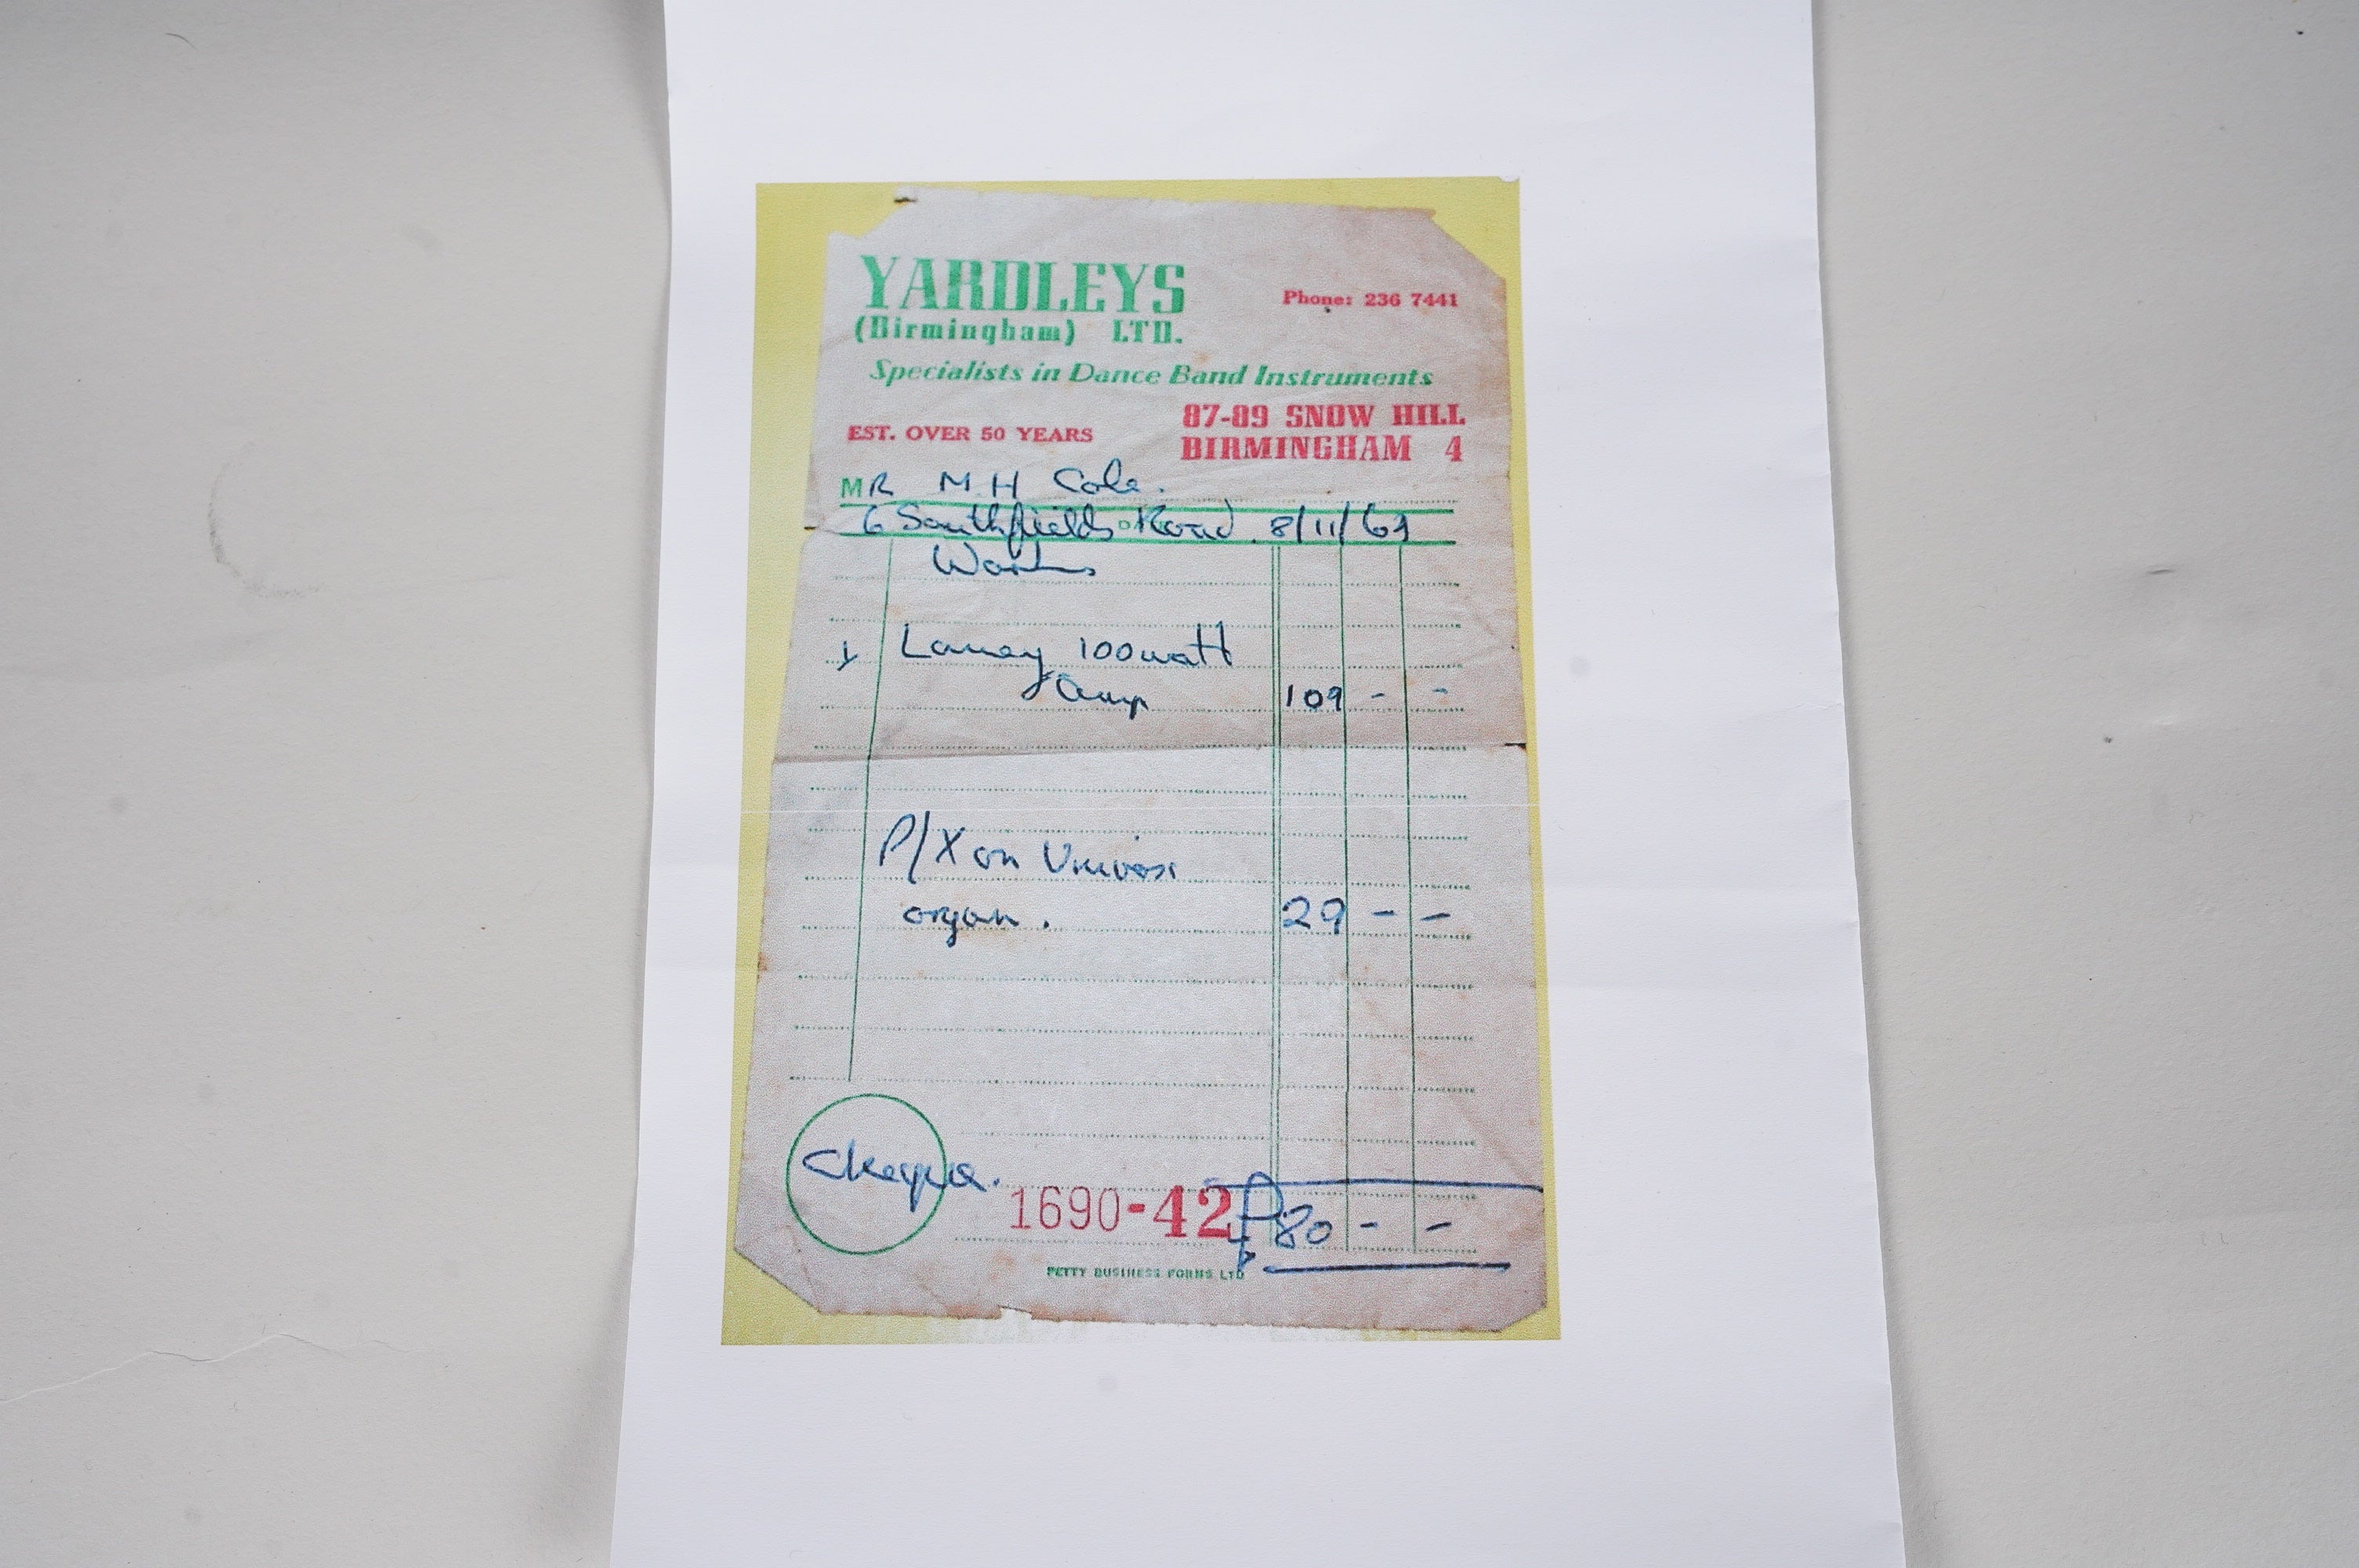 YARDLEYS
Phone: 236 7441
(Birmingham) LTD.
Specialists in Dance Band Instruments
87-89 SNOW HILL
EST. OVER 50 YEARS
BIRMINGHAM 4
MR M H Cole.
6 Southfields Road. 8/11/69
1 Laney 100 watt
Amp 109 - -
P/X on Univox
organ. 29 - -
Cheque.
1690-42 £80 - -
PETTY BUSINESS FORMS LTD